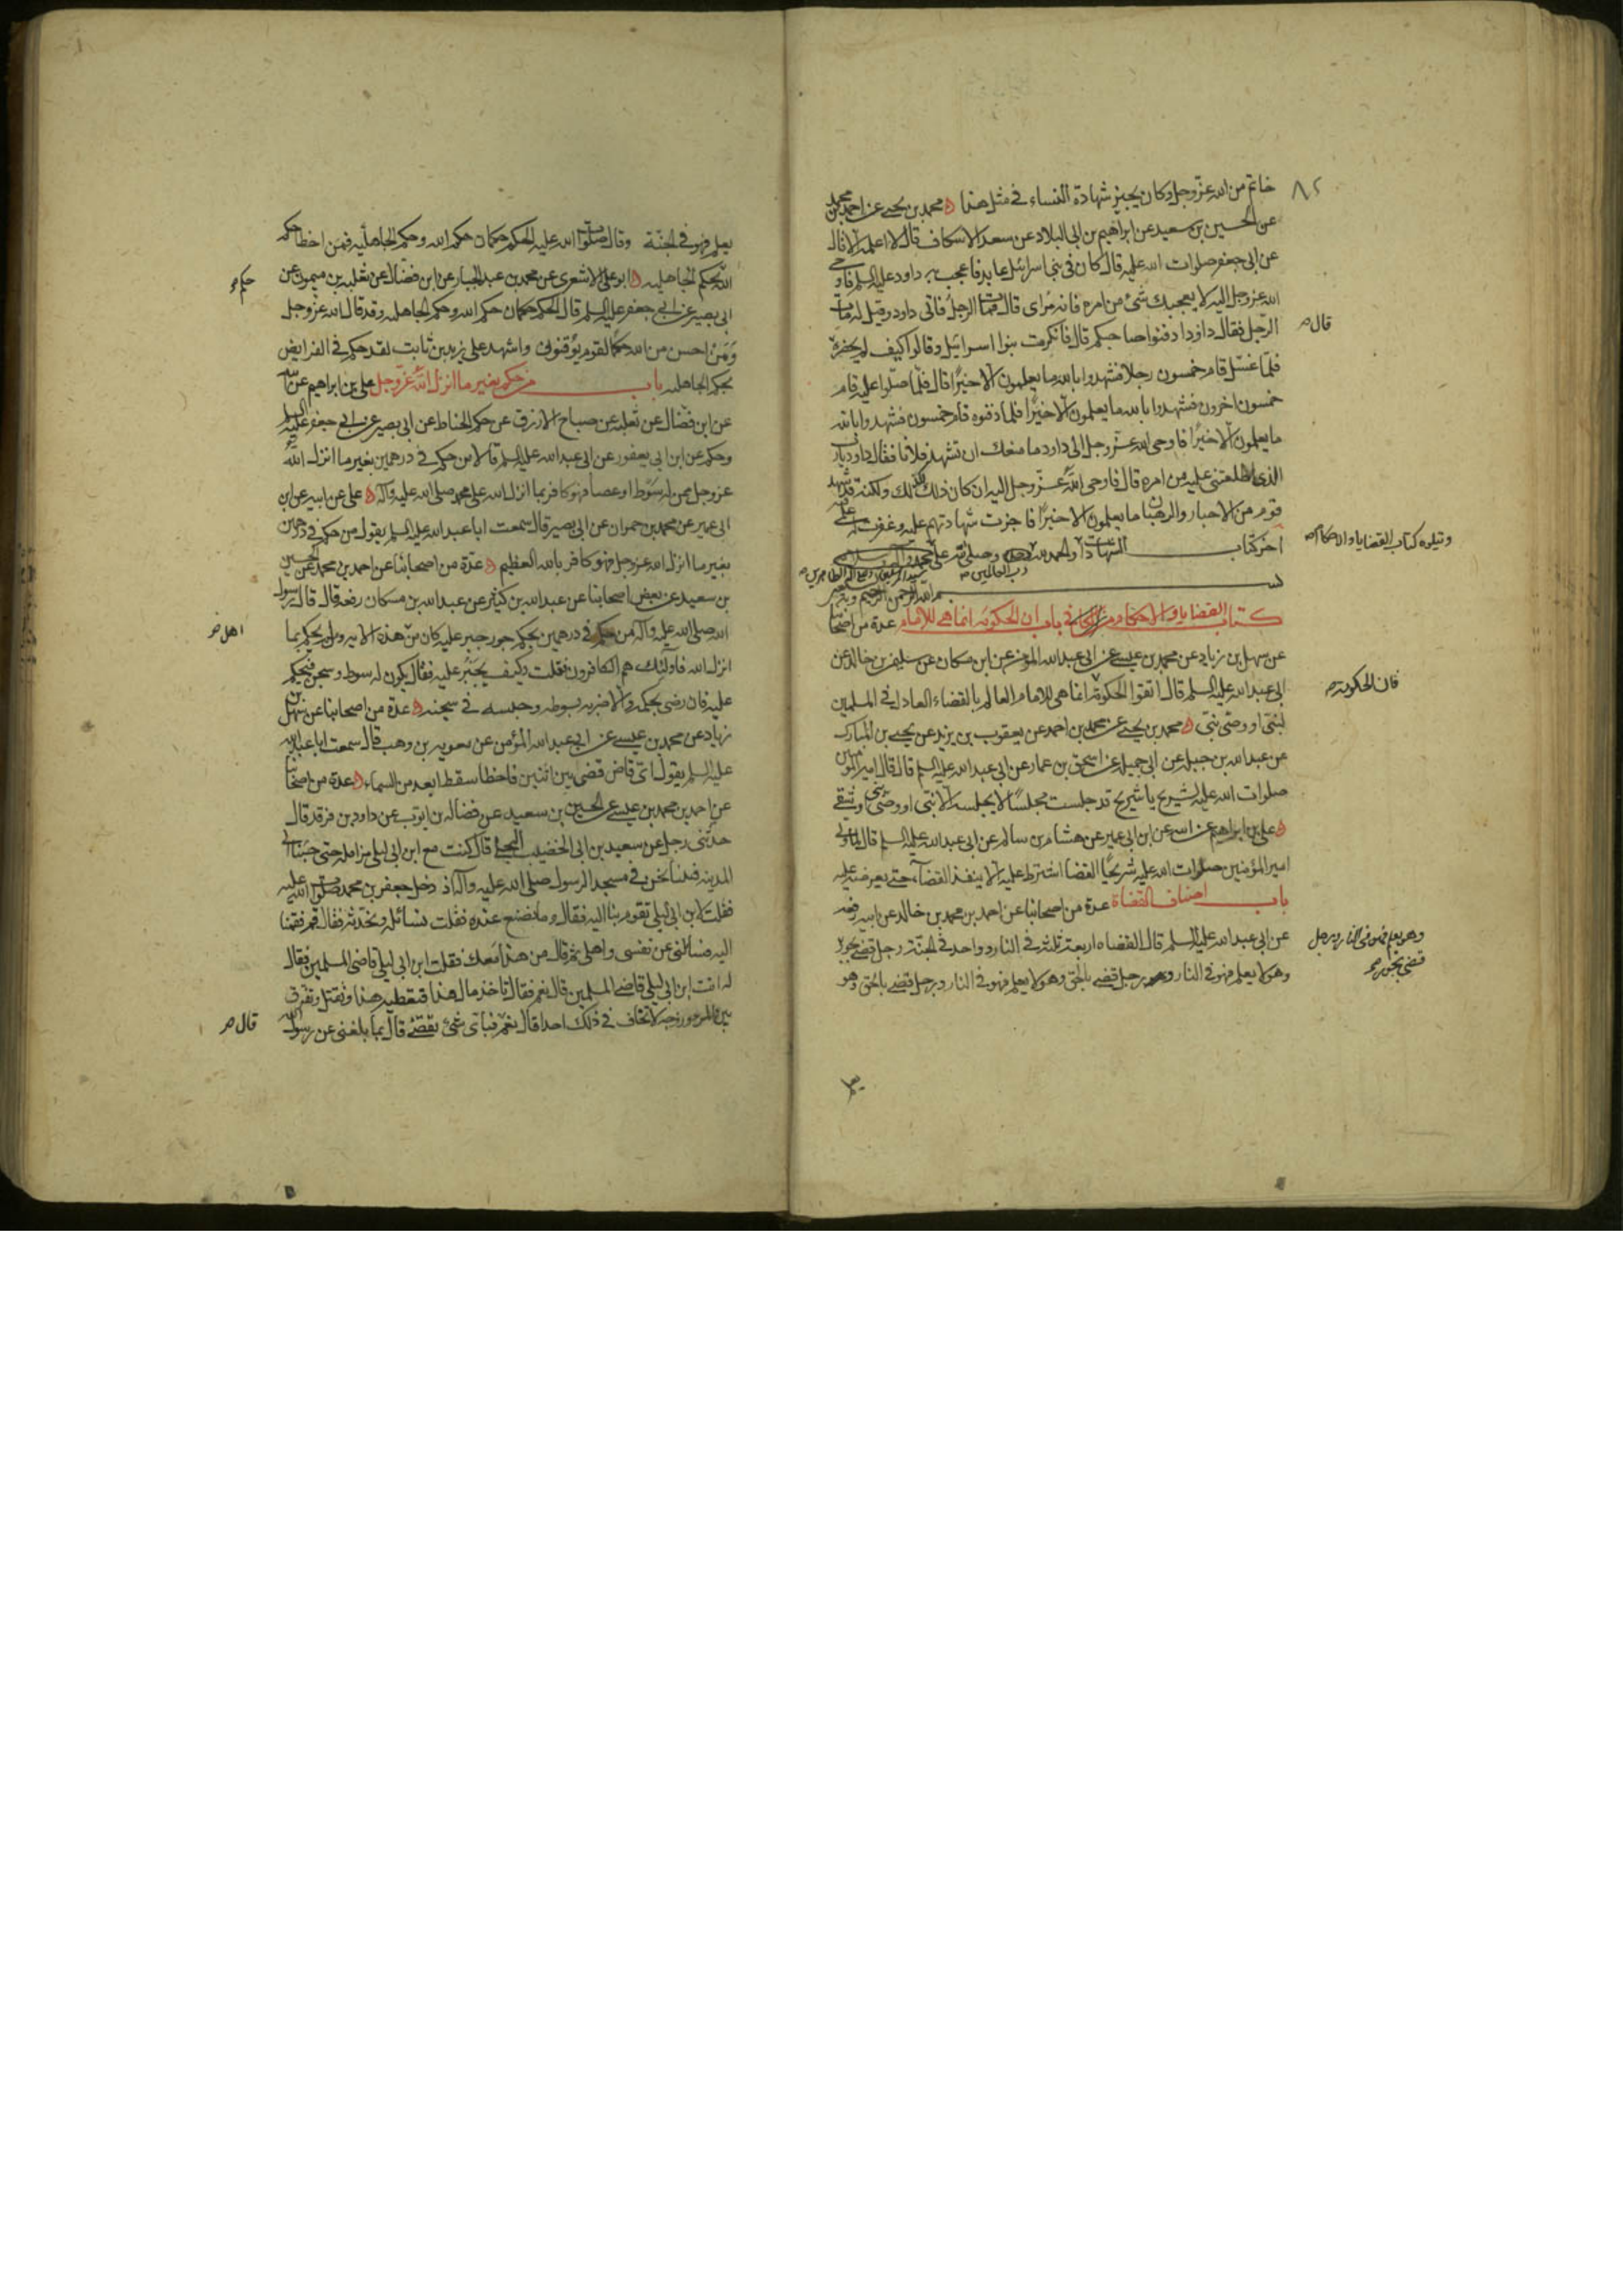 ٨٢
خاتم من الله عز وجل وكان يجيز شهادة النساء في مثل هذا محمد بن يحيى عن احمد بن محمد
عن الحسين بن سعيد عن ابراهيم بن ابي البلاد عن سعد الاسكاف قال لا اعلمه الا قال
عن ابي جعفر صلوات الله عليه قال كان في بني اسرائيل عابد فاعجب به داود عليه السلم فاوحى
الله عز وجل اليه لا يعجبك شئ من امره فانه مراى قال فمات الرجل فاتى داود وقيل له مات
الرجل فقال داود ادفنوا صاحبكم قال فانكرت بنوا اسرائيل وقالوا كيف لم يحضره
قال
فلما غسل قام خمسون رجلا فشهدوا بالله ما يعلمون الا خيرا قال فلما صلوا عليه قام
خمسون اخرون فشهدوا بالله ما يعلمون الا خيرا فلما دفنوه قام خمسون فشهدوا بالله
ما يعلمون الا خيرا فاوحى الله عز وجل الى داود ما منعك ان تشهد فلانا فقال داود يارب
الذي اطلعتني عليه من امره قال فاوحى الله عز وجل اليه ان كان ذلك كذلك ولكنه قد شهد
قوم من الاحبار والرهبان ما يعلمون الا خيرا فاجزت شهادتهم عليه وغفرت له علمي فيه
اخر كتاب الشهادات والحمد لله وحده وصلى الله على محمد واله
وتيلوه كتاب القضايا والاحكام
رب العالمين
بسم الله الرحمن الرحيم وبه
كتاب القضايا والاحكام من الكافي باب ان الحكومة انما هي للامام عدة من اصحابنا
عن سهل بن زياد عن محمد بن عيسى عن ابي عبد الله المؤمن عن ابن مسكان عن سليمن بن خالد عن
ابي عبد الله عليه السلم قال اتقوا الحكومة انما هي للامام العالم بالقضاء العادل في المسلمين
فان الحكومة
لنبي او وصي نبي محمد بن يحيى عن محمد بن احمد عن يعقوب بن يزيد عن يحيى بن المبارك
عن عبد الله بن جبلة عن ابي جميلة عن اسحق بن عمار عن ابي عبد الله عليه السلم قال قال امير المؤمنين
صلوات الله عليه لشريح يا شريح قد جلست مجلسا لا يجلسه الا نبي او وصي نبي او شقي
علي بن ابراهيم عن ابيه عن ابن ابي عمير عن هشام بن سالم عن ابي عبد الله عليه السلم قال لما ولى
امير المؤمنين صلوات الله عليه شريحا القضا اشترط عليه الا ينفذ القضاء حتى يعرضه عليه
باب اصناف القضاة عدة من اصحابنا عن احمد بن محمد بن خالد عن ابيه رفعه
عن ابي عبد الله عليه السلم قال القضاه اربعة ثلثة في النار وواحد في الجنة رجل قضى بجور
وهو يعلم فهو في النار ورجل
قضى بجور
وهو لا يعلم فهو في النار ورجل قضى بالحق وهو لا يعلم فهو في النار ورجل قضى بالحق وهو
يعلم فهو في الجنة وقال صلوات الله عليه الحكم حكمان حكم الله وحكم الجاهلية فمن اخطا حكم
الله بحكم الجاهليه ابو علي الاشعري عن محمد بن عبد الجبار عن ابن فضال عن ثعلبه بن ميمون عن
حكم
ابي بصير عن ابي جعفر عليه السلم قال الحكم حكمان حكم الله وحكم الجاهليه وقد قال الله عز وجل
ومن احسن من الله حكما لقوم يوقنون واشهد على زيد بن ثابت لقد حكم في الفرايض
بحكم الجاهليه باب من حكم بغير ما انزل الله عز وجل علي بن ابراهيم عن ابيه
عن ابن فضال عن ثعلبه عن صباح الازرق عن حكم الحناط عن ابي بصير عن ابي جعفر عليه السلم
وحكم عن ابن ابي يعفور عن ابي عبد الله عليه السلم قالا من حكم في درهمين بغير ما انزل الله
عز وجل ممن له سوط او عصا فهو كافر بما انزل الله على محمد صلى الله عليه وآله علي عن ابيه عن ابن
ابي عمير عن محمد بن حمران عن ابي بصير قال سمعت ابا عبد الله عليه السلم يقول من حكم في درهمين
بغير ما انزل الله عز وجل فهو كافر بالله العظيم عدة من اصحابنا عن احمد بن محمد عن الحسين
بن سعيد عن بعض اصحابنا عن عبد الله بن كثير عن عبد الله بن مسكان رفعه قال قال رسول
الله صلى الله عليه وآله من حكم في درهمين بحكم جور جبر عليه كان من هذه الايه ومن لم يحكم بما
اهل
انزل الله فاولئك هم الكافرون فقلت وكيف يجبر عليه فقال يكون له سوط وسجن فيحكم
عليه فان رضي بحكمه والا ضربه بسوطه وحبسه في سجنه عدة من اصحابنا عن سهل بن
زياد عن محمد بن عيسى عن ابي عبد الله المؤمن عن معويه بن وهب قال سمعت ابا عبد الله
عليه السلم يقول اي قاض قضى بين اثنين فاخطا سقط ابعد من السماء عدة من اصحابنا
عن احمد بن محمد بن عيسى عن الحسين بن سعيد عن فضاله بن ايوب عن داود بن فرقد قال
حدثني رجل عن سعيد بن ابي الخضيب البجلي قال كنت مع ابن ابي ليلى مزامله حتى جئنا الى
المدينه فبينا نحن في مسجد الرسول صلى الله عليه وآله اذ دخل جعفر بن محمد صلوات الله عليه
فقلت لابن ابي ليلى تقوم بنا اليه فقال وما نصنع عنده فقلت نسائله ونحدثه فقال قم فقمنا
اليه فسائلني عن نفسي واهلي ثم قال من هذا معك فقلت ابن ابي ليلى قاضي المسلمين فقال
له انت ابن ابي ليلى قاضي المسلمين قال نعم فقال تاخذ مال هذا فتعطيه هذا وتقتل وتفرق
بين المرء وزوجه لا تخاف في ذلك احدا قال نعم فباي شئ تقضي قال بما بلغني عن رسول الله
قال